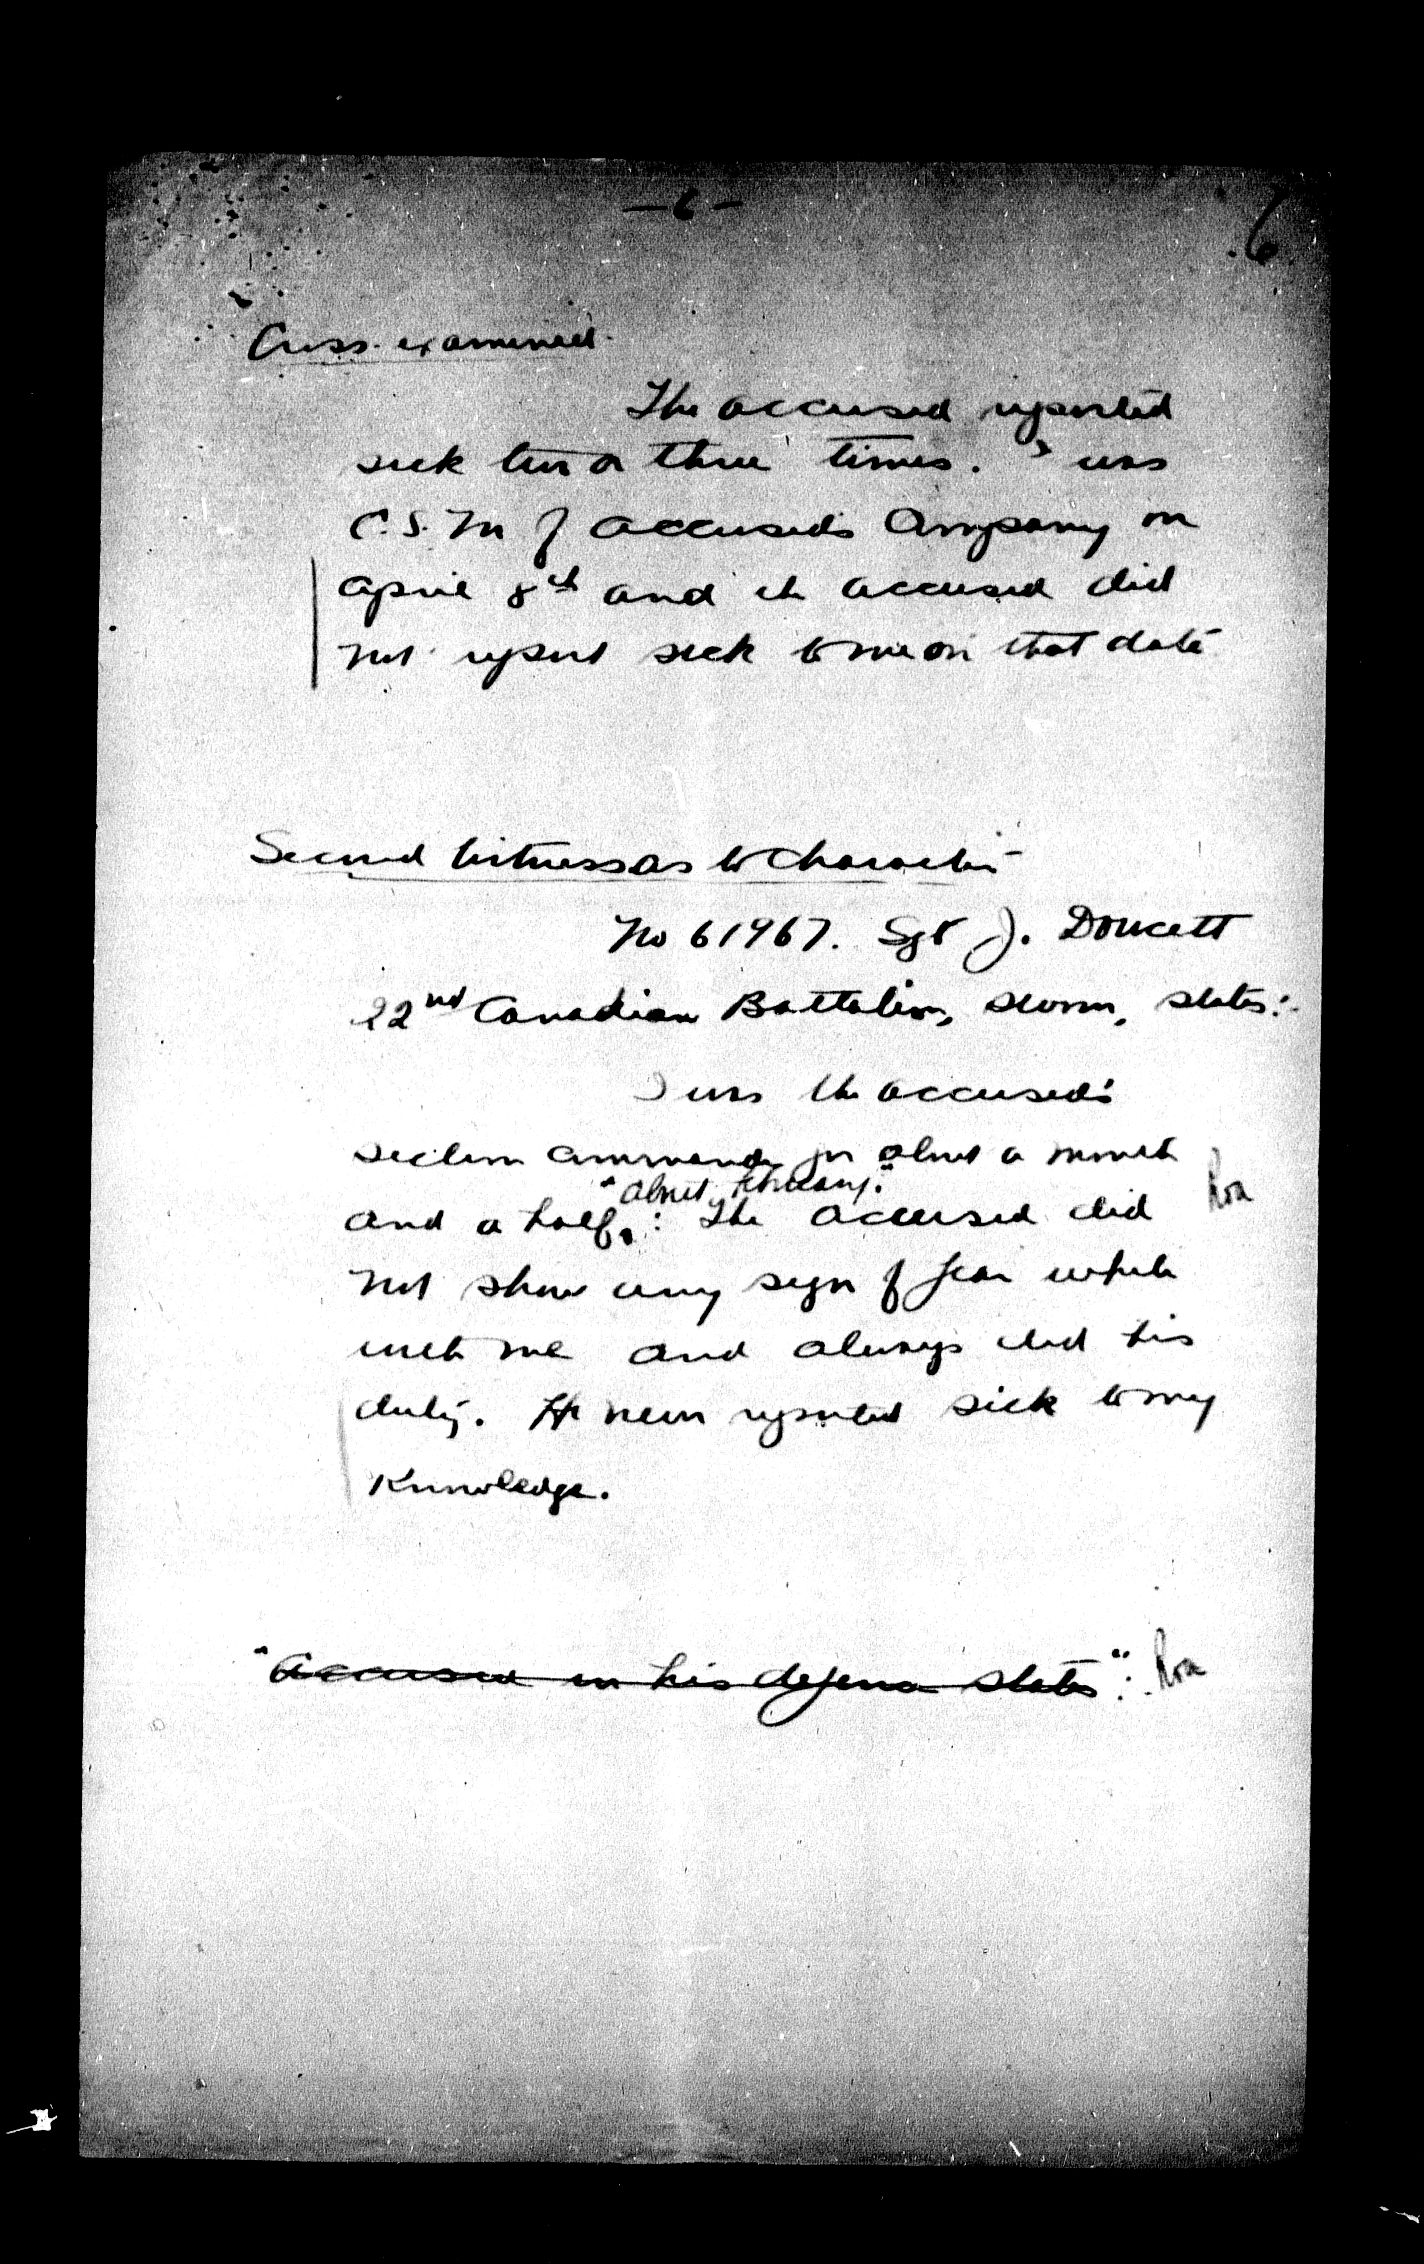 - 6 -
6
Cross-examined.
The accused reported
sick two or three times. I was
C.S.M of accused's Company on
April 8th and the accused did
not report sick to me on that date
Second witness as to character
No 61967. Sgt J. Doucett
22nd Canadian Battalion, sworn, states:-
I was the accused's
section commander for about a month
"about February."
and a half,: The accused did
not show any sign of fear while
with me and always did his
duty. He never reported sick to my
knowledge.
"Accused in his defence states":